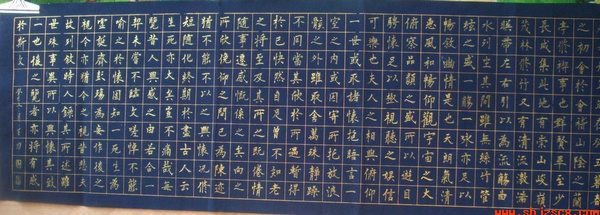 之初會於會稽山陰之蘭
亭修禊事也羣賢畢至少
長咸集此地有崇山峻嶺
茂林修竹又有清流激湍
映帶左右引以為流觴曲
水列坐其次雖無絲竹管
絃之盛一觴一詠亦足以
暢敘幽情是也天朗氣清
惠風和暢仰觀宇宙之大
俯察品類之盛所以遊目
騁懷足以極視聽之娛信
可樂也夫人之相與俯仰
一世或取諸懷抱晤言一
室之內或因寄所託放浪
骸之外雖取舍萬殊靜躁
不同當其欣於所遇暫得
於己快然自足曾不知老
之將至及其所之既倦情
隨事遷感慨係之矣向之
所欣俛仰之間已為陳迹
猶不能不以之興懷況修
短隨化終期於盡古人云
死生亦大矣豈不痛哉每
覽昔人興感之由若合一
契未嘗不臨文嗟悼不能
喻之於懷固知一死生為
虛誕齊彭殤為妄作後之
視今亦猶今之視昔悲夫
故列敘時人錄其所述雖
世殊事異所以興懷其致
一也後之覽者亦將有感
於斯文